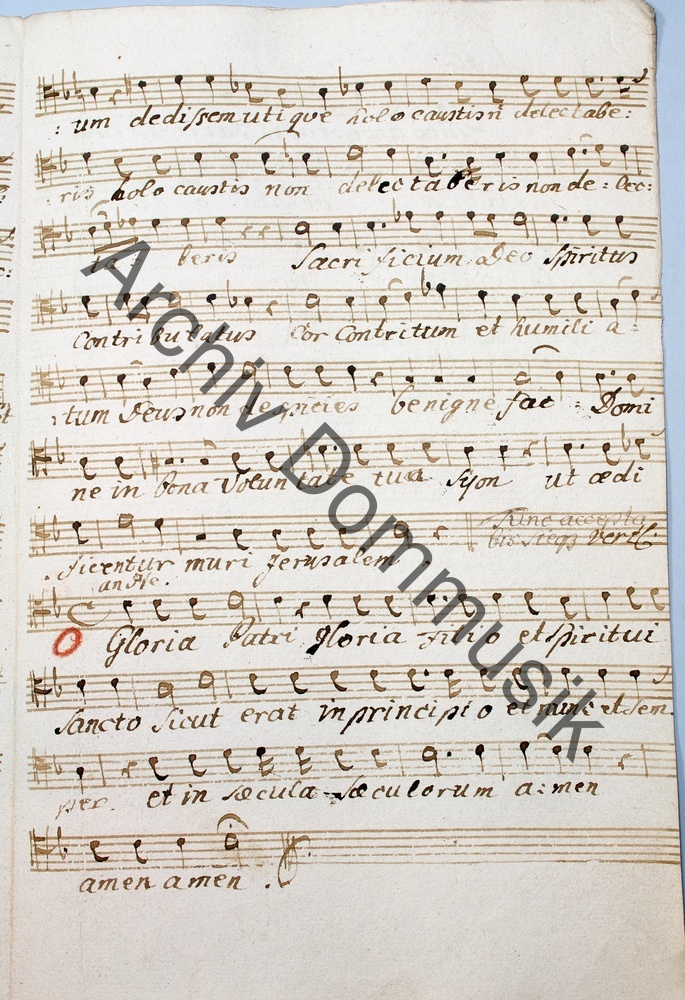 : um dedissem utique holocaustis n̄ delectabe:
: ris holo caustis non delectaberis non de: lec:
ta: beris Sacri ficium Deo Spiritus
Contribulatus Cor Contritum et humili a:
: tum Deus non despicies benigne fac : Domi
ne in bona voluntate tua Syon ut ædi
ficentur muri Jerusalem .
Tunc accepta
bis
andte.
Gloria Patri gloria filio et spiritui
Sancto Sicut erat in principio et nunc et sem
per et in sæcula sæculorum a: men
amen amen .
Archiv Dommusik